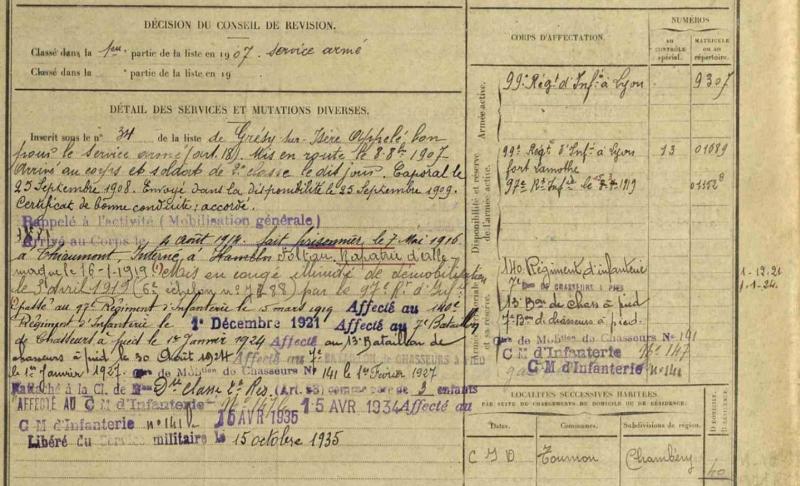 DÉCISION DU CONSEIL DE REVISION.
Classé dans la 1ère partie de la liste en 1907. Service armé
Classé dans la partie de la liste en 19
DÉTAIL DES SERVICES ET MUTATIONS DIVERSES.
Inscrit sous le n° 34 de la liste de Grésy-sur-Isère Appelé bon
pour le service armé (art. 18). Mis en route le 8 8bre 1907
Arrivé au corps et soldat de 2e classe le dit jour. Caporal le
25 Septembre 1908. Envoyé dans la disponibilité le 25 Septembre 1909.
Certificat de bonne conduite: accordé.
Rappelé à l'activité (Mobilisation générale)
Arrivé au Corps le 4 août 1914. fait prisonnier le 7 Mai 1916
à Thiaumont, Interné à Hameln Soltau. Rapatrié d'Alle
magne le 16-1-1919. Mis en congé illimité de démobilisation
le 3 avril 1919 (6e échelon n° 88) par le 97e Rt d'Inf.
passé au 97e Régiment d'Infanterie le 5 mars 1919 Affecté au 140e
Régiment d'Infanterie le 1er Décembre 1921 Affecté au 7e Bataillon
de Chasseurs à pied le 1er Janvier 1924 Affecté au 13e Bataillon de
chasseurs à pied le 30 Août 1924 Affecté au 7e BATAILLON de CHASSEURS à PIED
le 1er Janvier 1927. de Chasseurs N° 141 le 1er Février 1927
Rattaché à la Cl. de Dre classe 2e Res. (Art. 58) comme père de 3 enfants
AFFECTÉ AU C M d'Infanterie N° 147 15 AVR 1934 Affecté au
C M d'Infanterie n° 141 15 AVR 1935
Libéré du Service militaire le 15 octobre 1935
CORPS D'AFFECTATION.
NUMÉROS
AU CONTRÔLE spécial.
MATRICULE ou au répertoire.
Armée active.
99e Régt d'Infie à Lyon 9307
Disponibilité et réserve de l'armée active.
99e Regt d'Infie à Lyon 13 01089
fort Lamothe
97e Rt Infie le 1919
140 Régiment d'infanterie
7e Bon DE CHASSEURS A PIED
13e Bon de Chas à pied
7e Bon de chasseurs à pied.
de Chasseurs N° 141
C M d'Infanterie N° 147
C M d'Infanterie n° 141
1-12.21
1-1-24.
LOCALITÉS SUCCESSIVES HABITÉES
PAR SUITE DU CHANGEMENTS DE DOMICILE OU DE RÉSIDENCE.
Dates. Communes. Subdivisions de région. D DOMICILE. R RÉSIDENCE.
Tournon Chambéry